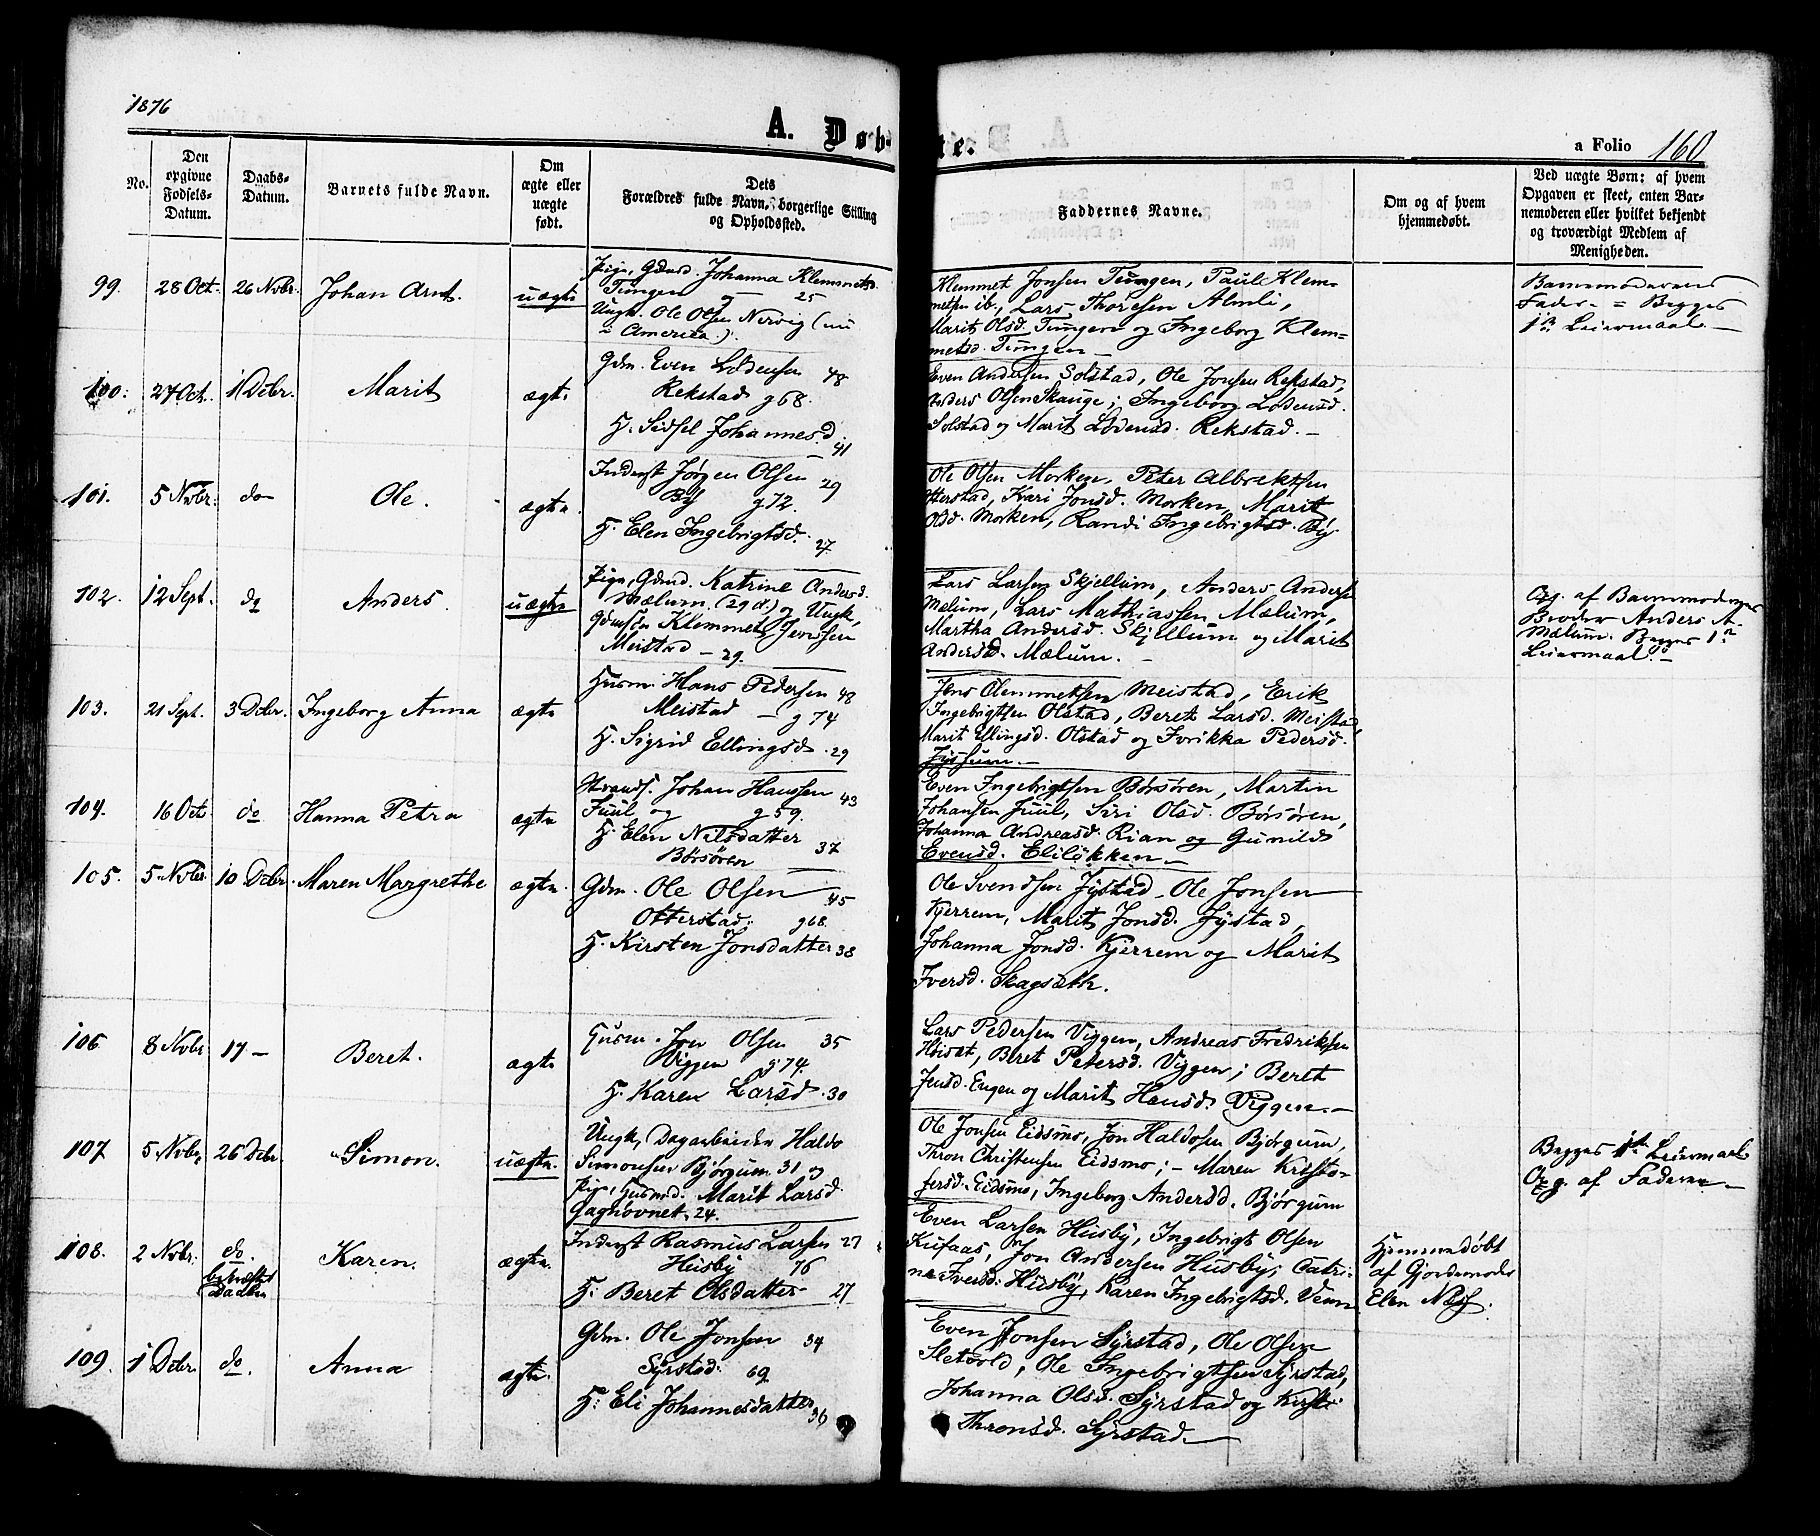 1876
A. Døbte.
a Folio 160
No.
Den opgivne Fødsels-Datum.
Daabs-Datum.
Barnets fulde Navn.
Om ægte eller uægte født.
Forældres fulde Navn, Dets borgerlige Stilling og Opholdssted.
Faddernes Navne.
Om og af hvem hjemmedøbt.
Ved uægte Børn: af hvem Opgaven er skeet, enten Barnemoderen eller hvilket bekjendt og troværdigt Medlem af Menigheden.
99. 28 Oct. 26 Nobr. Johan Arnt. uægte
Pige, Gdmd. Johanna Klemmetsd.
Tungen 25
Ungk. Ole Olsen Nervig (nu
i America.).
Klemmet Jonsen Tungen, Paul Klem-
metsen ib., Lars Thoresen Almli,
Marit Olsd. Tungen og Ingeborg Klem-
metsd. Tungen
Barnemoderens
Fader. = Begges
1st Leiermaal.
100. 27 Oct. 1 Debr. Marit ægte
Gdm. Even Lodensen 48
Rekstad g 68.
H. Sissel Johannesd. 41
Even Andersen Solstad, Ole Jonsen Rekstad,
Anders Olsen Skauge; Ingeborg Lodensd.
Solstad og Marit Lodensd. Rekstad. —
101. 5 Nvbr. do Ole. ægte
Inderst Jørgen Olsen 29
By g 72.
H. Elen Ingebrigtsd. 27.
Ole Olsen Morken, Peter Albrektsen
Otterstad, Kari Jonsd. Morken, Marit
Olsd. Morken, Randi Ingebrigtsd. By
102. 12 Sept. do Anders. uægte
Pige, Gdmd. Katrine Andersd.
Mælum. (29 d.) og Ungk,
Gdmsøn Klemmet Jenssen
Meistad — 29.
Lars Larsen Skjellum, Anders Anders
Mælum, Lars Mathiassen Mælum,
Martha Andersd. Skjellum og Marit
Andersd. Mælum. —
Opg. af Barnemoderens
Broder Anders A.
Mælum. Begges 1st
Leiermaal. —
103. 21 Sept. 3 Debr. Ingeborg Anna ægte
Husm. Hans Pedersen 48
Meistad — g 74
H. Sigrid Ellingsd. 29
Jens Clemmetsen Meistad, Erik
Ingebrigtsen Olstad, Beret Larsd. Meistad,
Marit Ellingsd. Olstad og Fredrikka Pedersd.
104. 16 Oct do Hanna Petra ægte
Strands. Johan Hanssen 43
Juul og g 59.
H. Elen Nilsdatter 37
Børsøren
Even Ingebrigtsen Børsøren, Martin
Johansen Juul, Siri Olsd. Børsøren,
Johanna Andreasd. Rian og Gunild
Evensd. Eliløkken —
105. 5 Nvbr 10 Debr. Maren Margrethe ægte.
Gdm. Ole Olsen 45
Otterstad. g 68.
H. Kirsten Jonsdatter 38
Ole Svendsen Jystad, Ole Jonsen
Kjerrem, Marit Jonsd. Jystad,
Johanna Jonsd. Kjerrem og Marit
Iversd. Skagsæth.
106 8 Nvbr 17 — Beret. ægte
Husm. Iver Olsen 35
Viggen g 74.
H. Karen Larsd. 30
Lars Pedersen Viggen, Andreas Fredriksen
Høisæt, Beret Petersd. Viggen; Beret
Jensd. Eugen og Marit Hansd. Viggen. —
107 5 Nvbr 26 Debr. Simon. uægte.
Ungk, Dagarbeider Haldo
Simonsen Bjørgum 31 og
Pige, Husmd. Marit Larsd
Gagnovnet. 24.
Ole Jonsen Eidsmo, Jon Haldosen Bjørgum,
Thron Christensen Eidsmo; — Maren Kristo-
fersd. Eidsmo, Ingeborg Andersd. Bjørgum
Begges 1ste Leiermaal
Opg. af Faderen —
108. 2 Nvbr. do. Karen. ægte.
bekræftet
Daaben
Inderst Rasmus Larsen 27
Husby 76
H. Beret Olsdatter 27
Even Larsen Husby, Ingebrigt Olsen
Kufaas, Jon Andersen Husby; Catri-
ne Iversd. Husby, Karen Ingebrigtsd. Venn
Hjemmedøbt
af Gjordemoder
Elen Næss.
109. 1 Debr. do. Anna ægte.
Gdm. Ole Jonsen 34
Syrstad. 69.
H. Eli Johannesdatter 36
Even Jonsen Syrstad, Ole Olsen
Sletvold, Ole Ingebrigtsen Syrstad,
Johanna Olsd. Syrstad og Kirsti
Thronsd. Syrstad. —